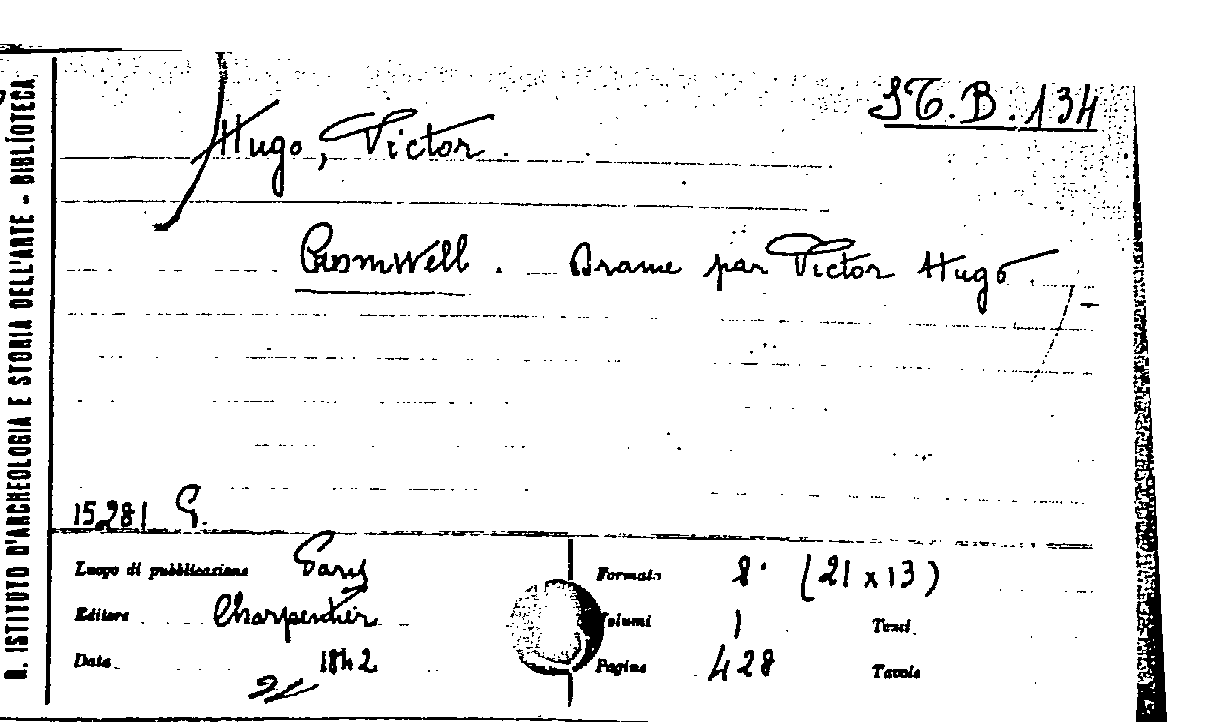 R. ISTITUTO D'ARCHEOLOGIA E STORIA DELL'ARTE - BIBLIOTECA
ST. B. 134
Hugo, Victor.
Cromwell. Drame par Victor Hugo.
15281 G.
Luogo di pubblicazione Paris
Editore Charpentier
Data 1842
Formato 8° (21 x 13)
Volumi 1 Testi
Pagine 428 Tavole